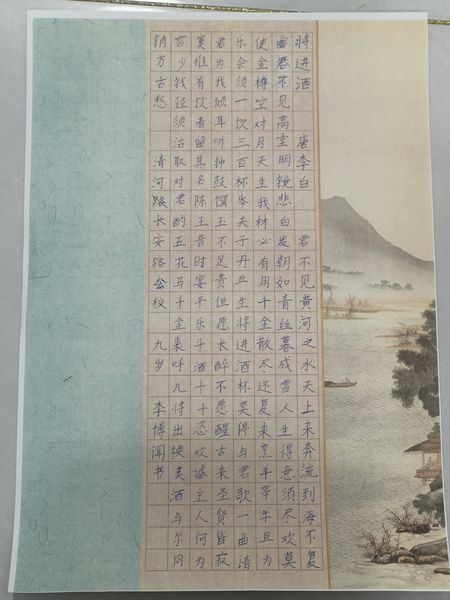 将进酒 唐李白 君不见黄河之水天上来奔流到海不复
回君不见高堂明镜悲白发朝如青丝暮成雪人生得意须尽欢莫
使金樽空对月天生我材必有用千金散尽还复来烹羊宰牛且为
乐会须一饮三百杯岑夫子丹丘生将进酒杯莫停与君歌一曲请
君为我倾耳听钟鼓馔玉不足贵但愿长醉不愿醒古来圣贤皆寂
寞惟有饮者留其名陈王昔时宴平乐斗酒十千恣欢谑主人何为
言少钱径须沽取对君酌五花马千金裘呼儿将出换美酒与尔同
销万古愁 清河路长安路校 九岁 李博闻书